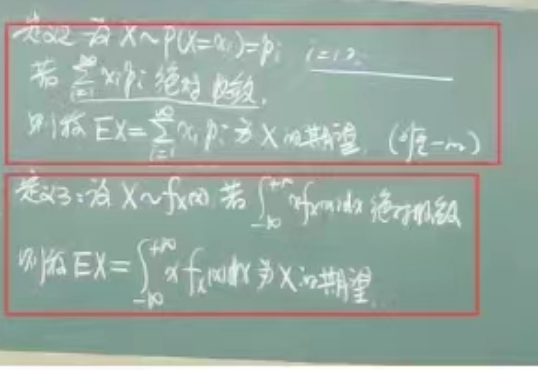 定义2 设 X~P(X=xᵢ)=pᵢ i=1,2,
若 ∑_{i=1}^{∞} xᵢpᵢ 绝对收敛,
则称 EX=∑_{i=1}^{∞} xᵢ pᵢ 为 X 的期望.
定义3: 设 X~f_X(x), 若 ∫_{-∞}^{+∞} x f_X(x)dx 绝对收敛
则称 EX=∫_{-∞}^{+∞} x f_X(x)dx 为 X 的期望.